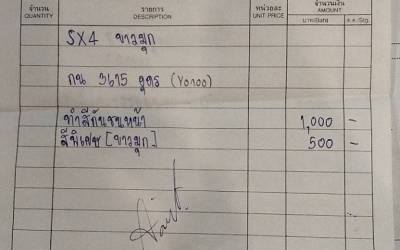 จำนวน รายการ หน่วยละ จำนวนเงิน
QUANTITY DESCRIPTION UNIT PRICE AMOUNT
บาท/Baht ส.ต./Stg.
SX4 ขาวมุก
กน 3615 อุดร (Y0100)
ทำสีกันชนหน้า 1,000 -
สีพิเศษ [ขาวมุก] 500 -